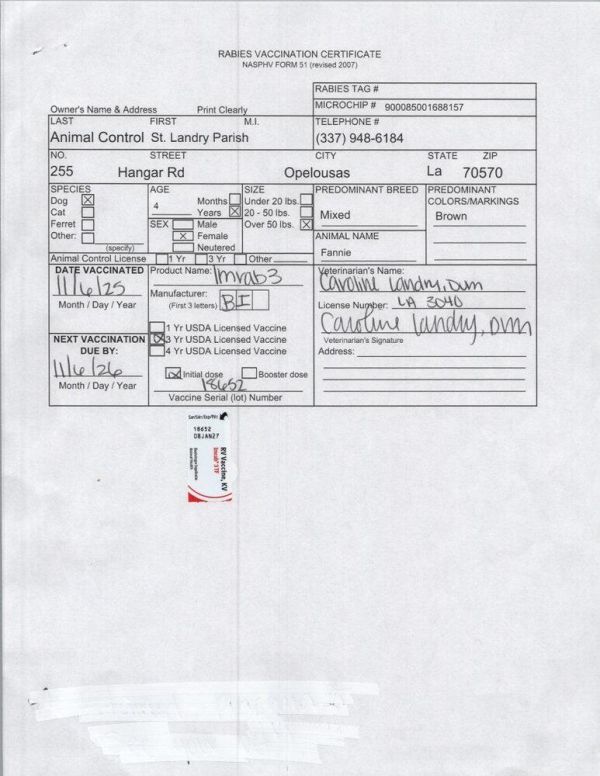 RABIES VACCINATION CERTIFICATE
NASPHV FORM 51 (revised 2007)
RABIES TAG #
MICROCHIP # 900085001688157
Owner's Name & Address Print Clearly
LAST FIRST M.I. TELEPHONE #
Animal Control St. Landry Parish (337) 948-6184
NO. STREET CITY STATE ZIP
255 Hangar Rd Opelousas La 70570
SPECIES
Dog
Cat
Ferret
Other:
(specify)
AGE
4
Months
Years
SEX Male
Female
Neutered
SIZE
Under 20 lbs.
20 - 50 lbs.
Over 50 lbs.
PREDOMINANT BREED
Mixed
ANIMAL NAME
Fannie
PREDOMINANT
COLORS/MARKINGS
Brown
Animal Control License 1 Yr 3 Yr Other
DATE VACCINATED
11/6/25
Month / Day / Year
NEXT VACCINATION
DUE BY:
11/6/26
Month / Day / Year
Product Name: Imrab3
Manufacturer:
(First 3 letters) BI
1 Yr USDA Licensed Vaccine
3 Yr USDA Licensed Vaccine
4 Yr USDA Licensed Vaccine
Initial dose Booster dose
18652
Vaccine Serial (lot) Number
Veterinarian's Name:
Caroline Landry, DVM
License Number: LA 3040
Caroline Landry, DVM
Veterinarian's Signature
Address:
18652
08JAN27
RV Vaccine, KV
Imrab® 3 TF